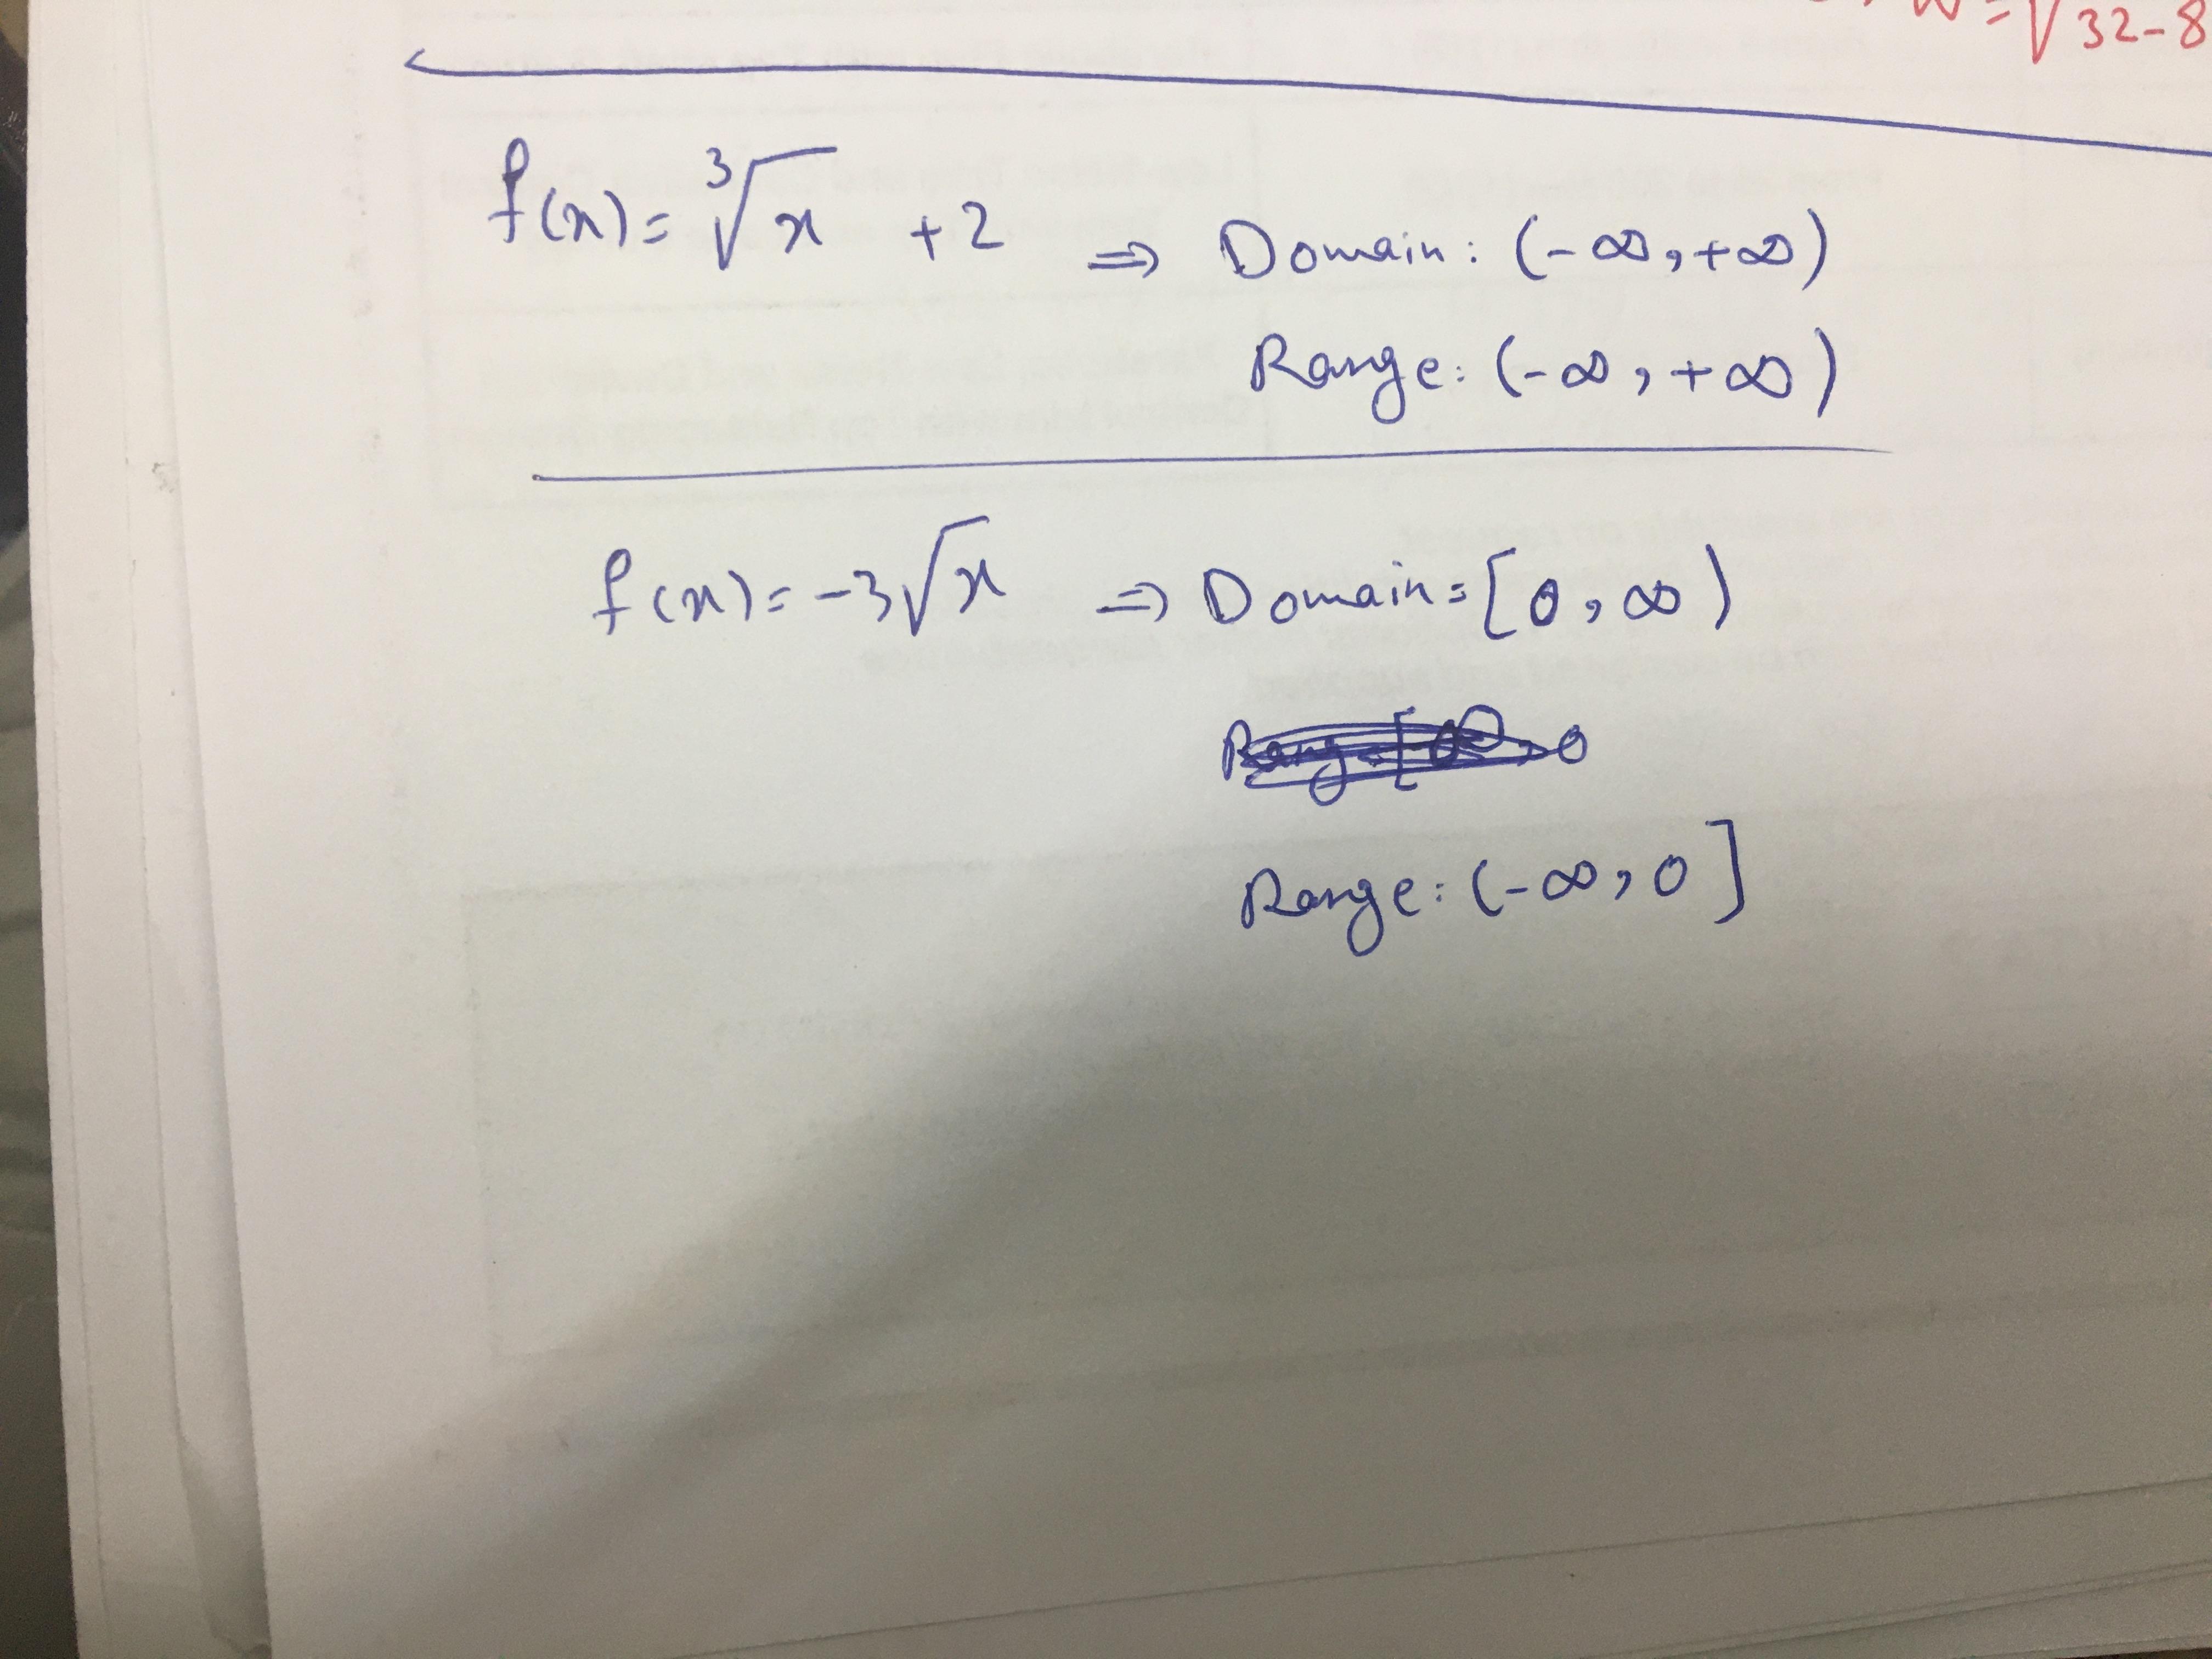 W = √32-8
f(x) = ∛x +2 ⇒ Domain: (-∞, +∞)
Range: (-∞, +∞)
f(x) = -3√x ⇒ Domain = [0, ∞)
Range: (-∞, 0]